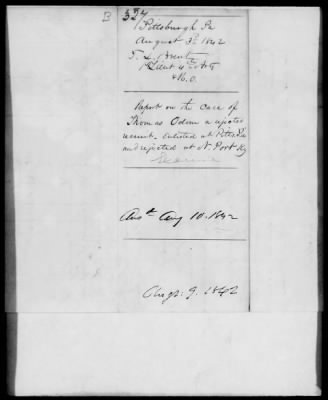 B 327
Pittsburgh Pa
August 3d 1842
T. L. Brent
1 Lieut 4th Arty
& R.O.
Report on the case of
Thomas Odum a rejected
recruit. enlisted at Pitts. Pa
and rejected at N. Port Ky
Ansd Aug 10. 1842
Augt. 9. 1842